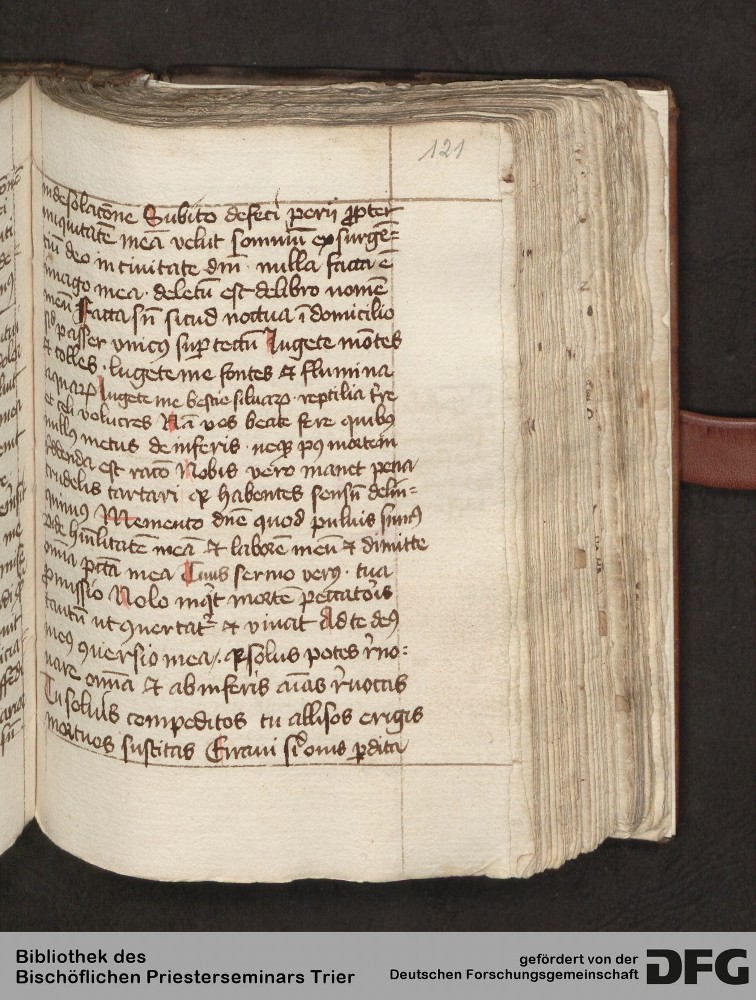 121
in desolacōne Subito defeci perii ꝓpter
iniquitatē meā velut somniū exsurgē=
tiū deo in ciuitate dn̄i · nulla facta ē
imago mea · deletū est de libro nomē
meū Facta sū sicud noctua ī domicilio
passer vnicꝰ sup tectū Lugete mōtes
et colles · lugete me fontes et flumina
aquaꝝ Lugete me bestie siluaꝝ · reptilia t̄re
et celi volucres Nā vos beate fere quibꝰ
nullꝰ metus de inferis · neqꝫ pꝰ mortem
reddenda est racō Nobis vero manet pena
crudelis tartari qꝫ habentes sensū delin=
quimꝰ Memento dn̄e quod puluis sumꝰ
vide hūilitatē meā et laborē meū et dimitte
om̄ia pctā mea Cuius sermo verꝰ · tua
ꝓmissio Nolo inqt morte peccatoris
tantū ut ꝯuertatr et viuat Ad te deꝰ
meꝰ ꝯuersio mea · qꝫ solus potes r̄no=
uare om̄ia Et ab inferis aīas r̄uocas
Tu soluis compeditos tu allisos erigis
mortuos suscitas Erraui sic ouis ꝑdita
Bibliothek des
Bischöflichen Priesterseminars Trier
gefördert von der
Deutschen Forschungsgemeinschaft
DFG